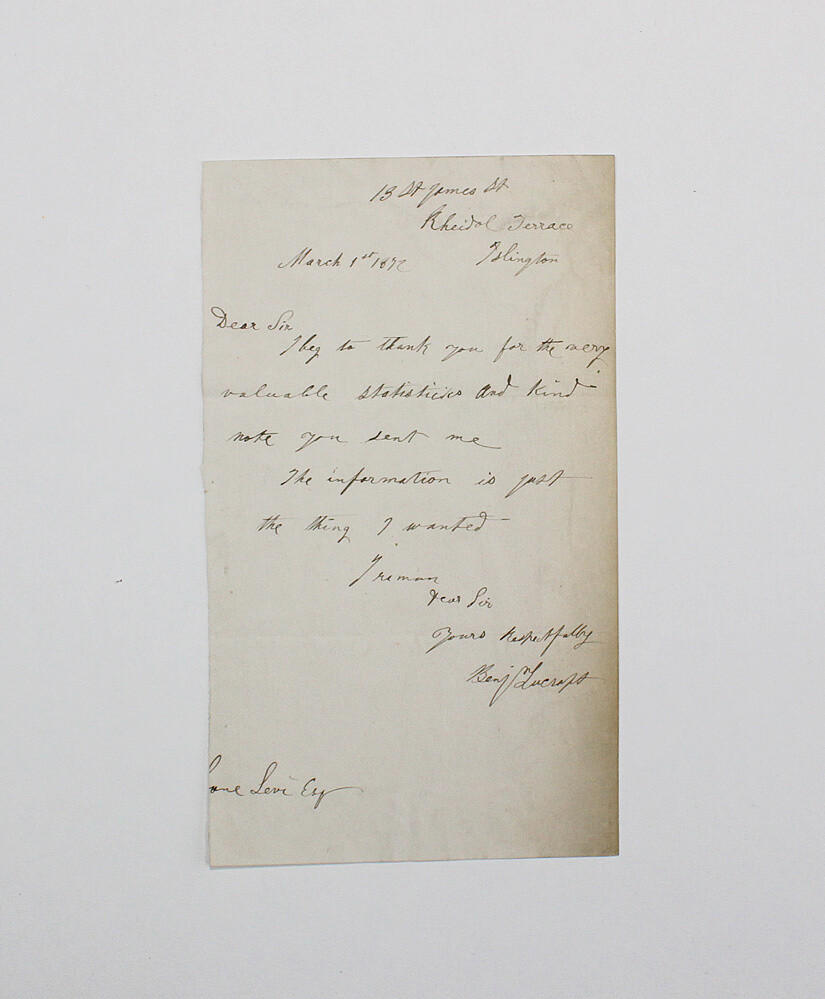 13 St James St
Rheidol Terrace
March 1st 1872 Islington
Dear Sir
I beg to thank you for the very
valuable statisticks and kind
note you sent me
The information is just
the thing I wanted
I remain
Dear Sir
Yours Respectfully
Benjn Lucraft
Leone Levi Esq